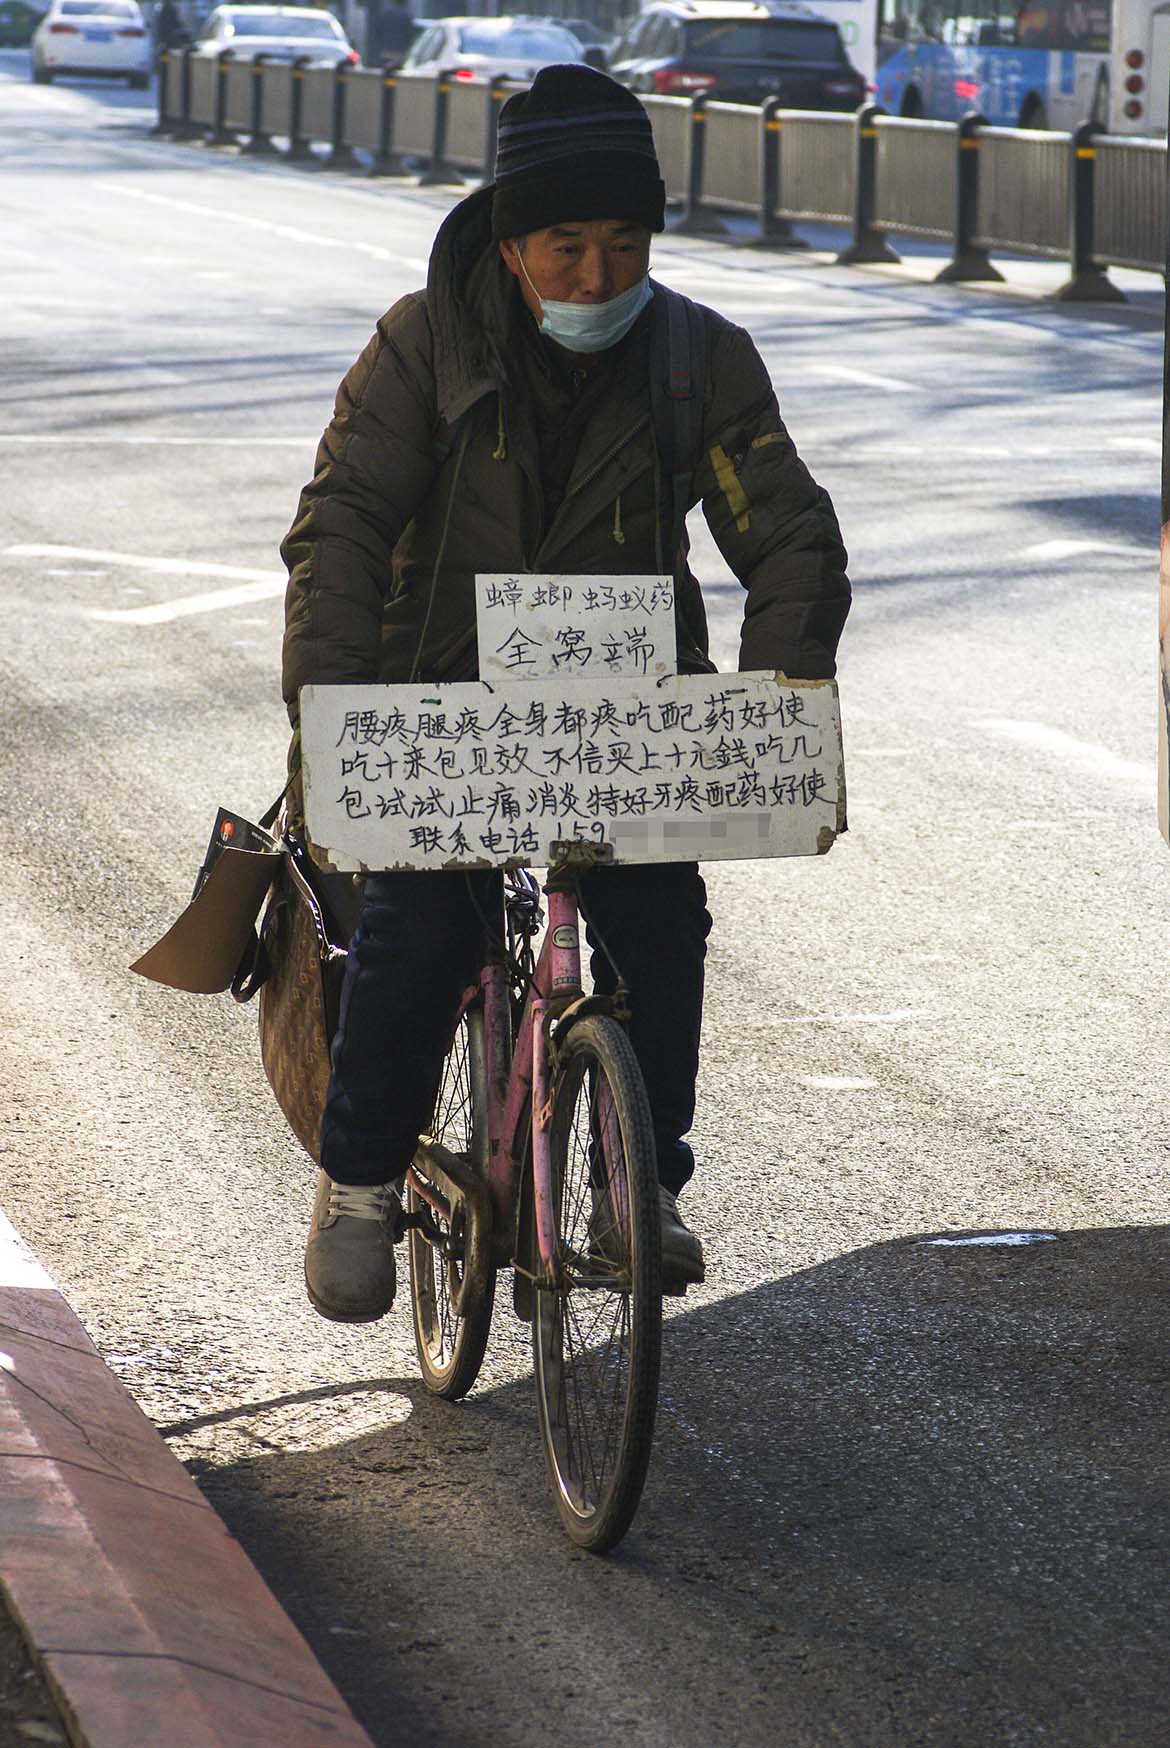 蟑螂蚂蚁药
全窝端
腰疼腿疼全身都疼吃配药好使
吃十来包见效不信买上十元錢吃几
包试试止痛消炎特好牙疼配药好使
联系电话159